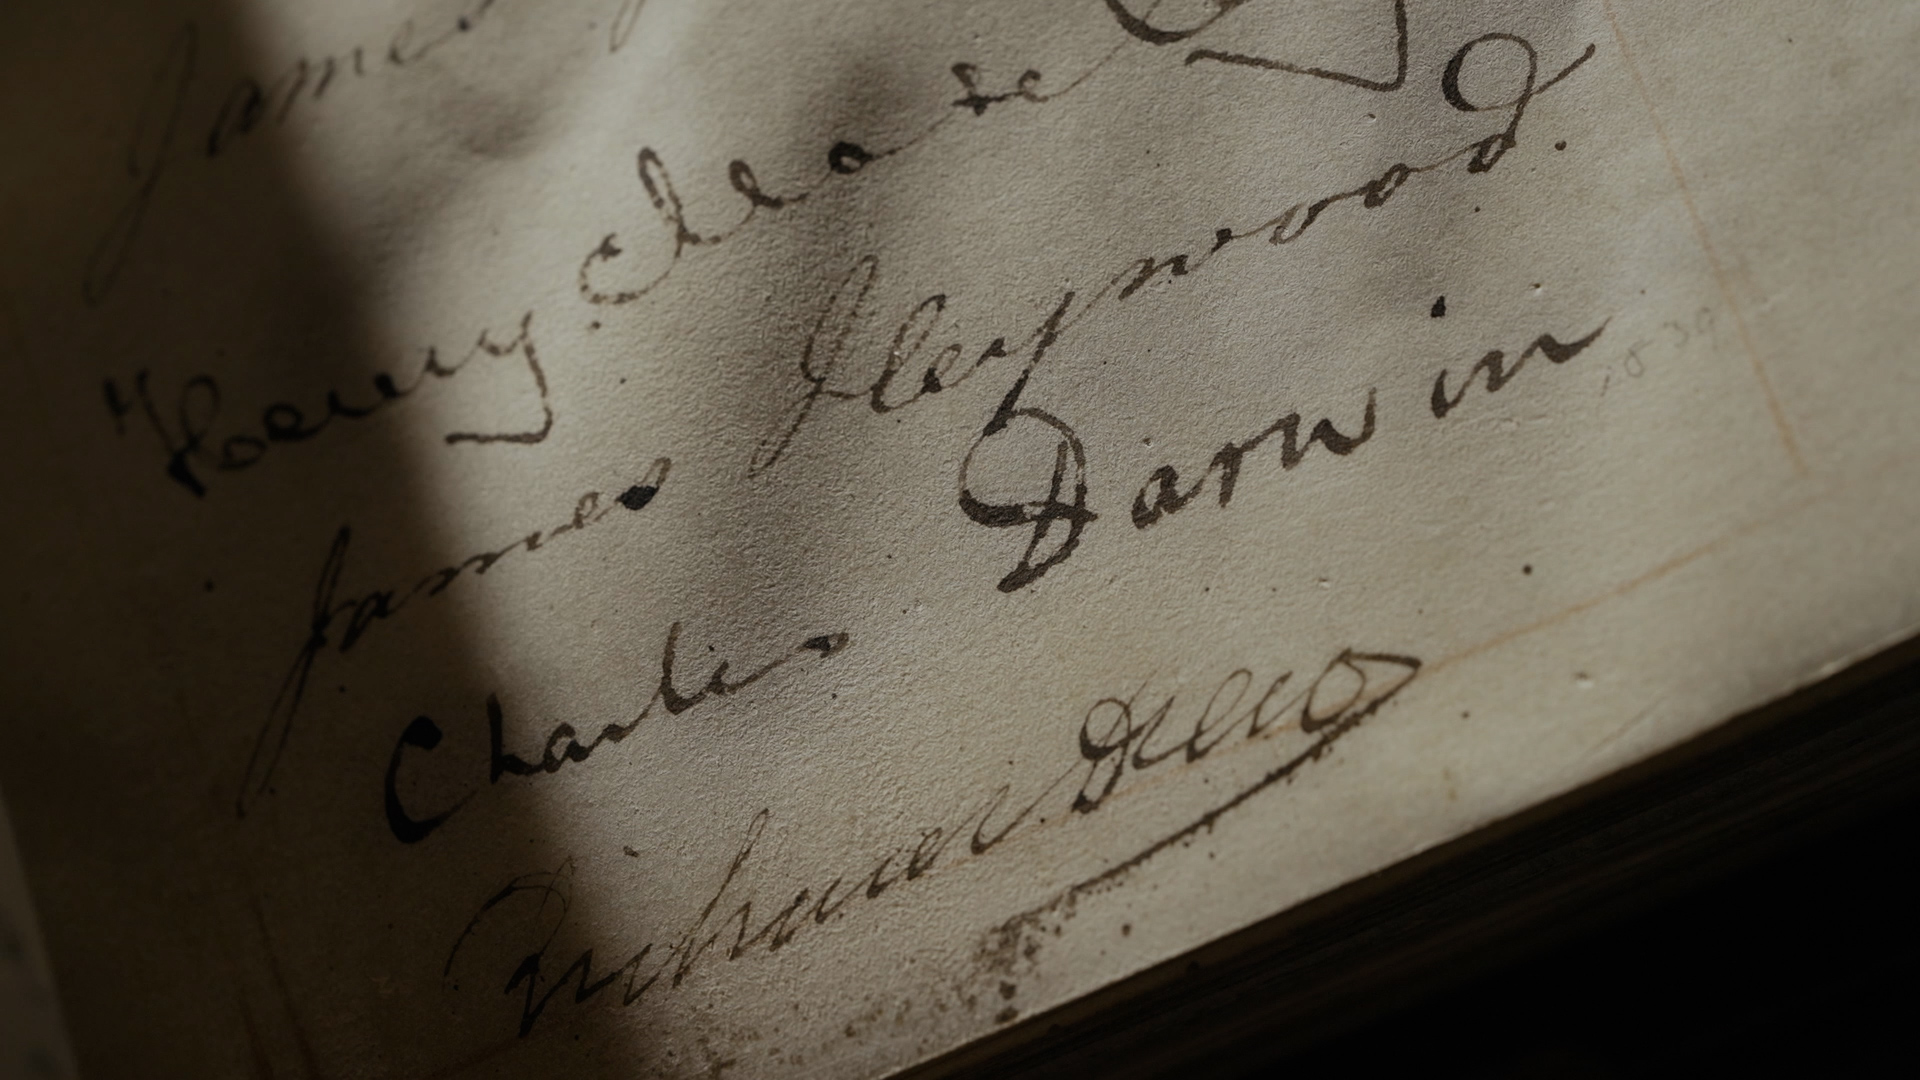 James
Henry Clease
James Heywood.
Charles Darwin
1839
Richard Drew